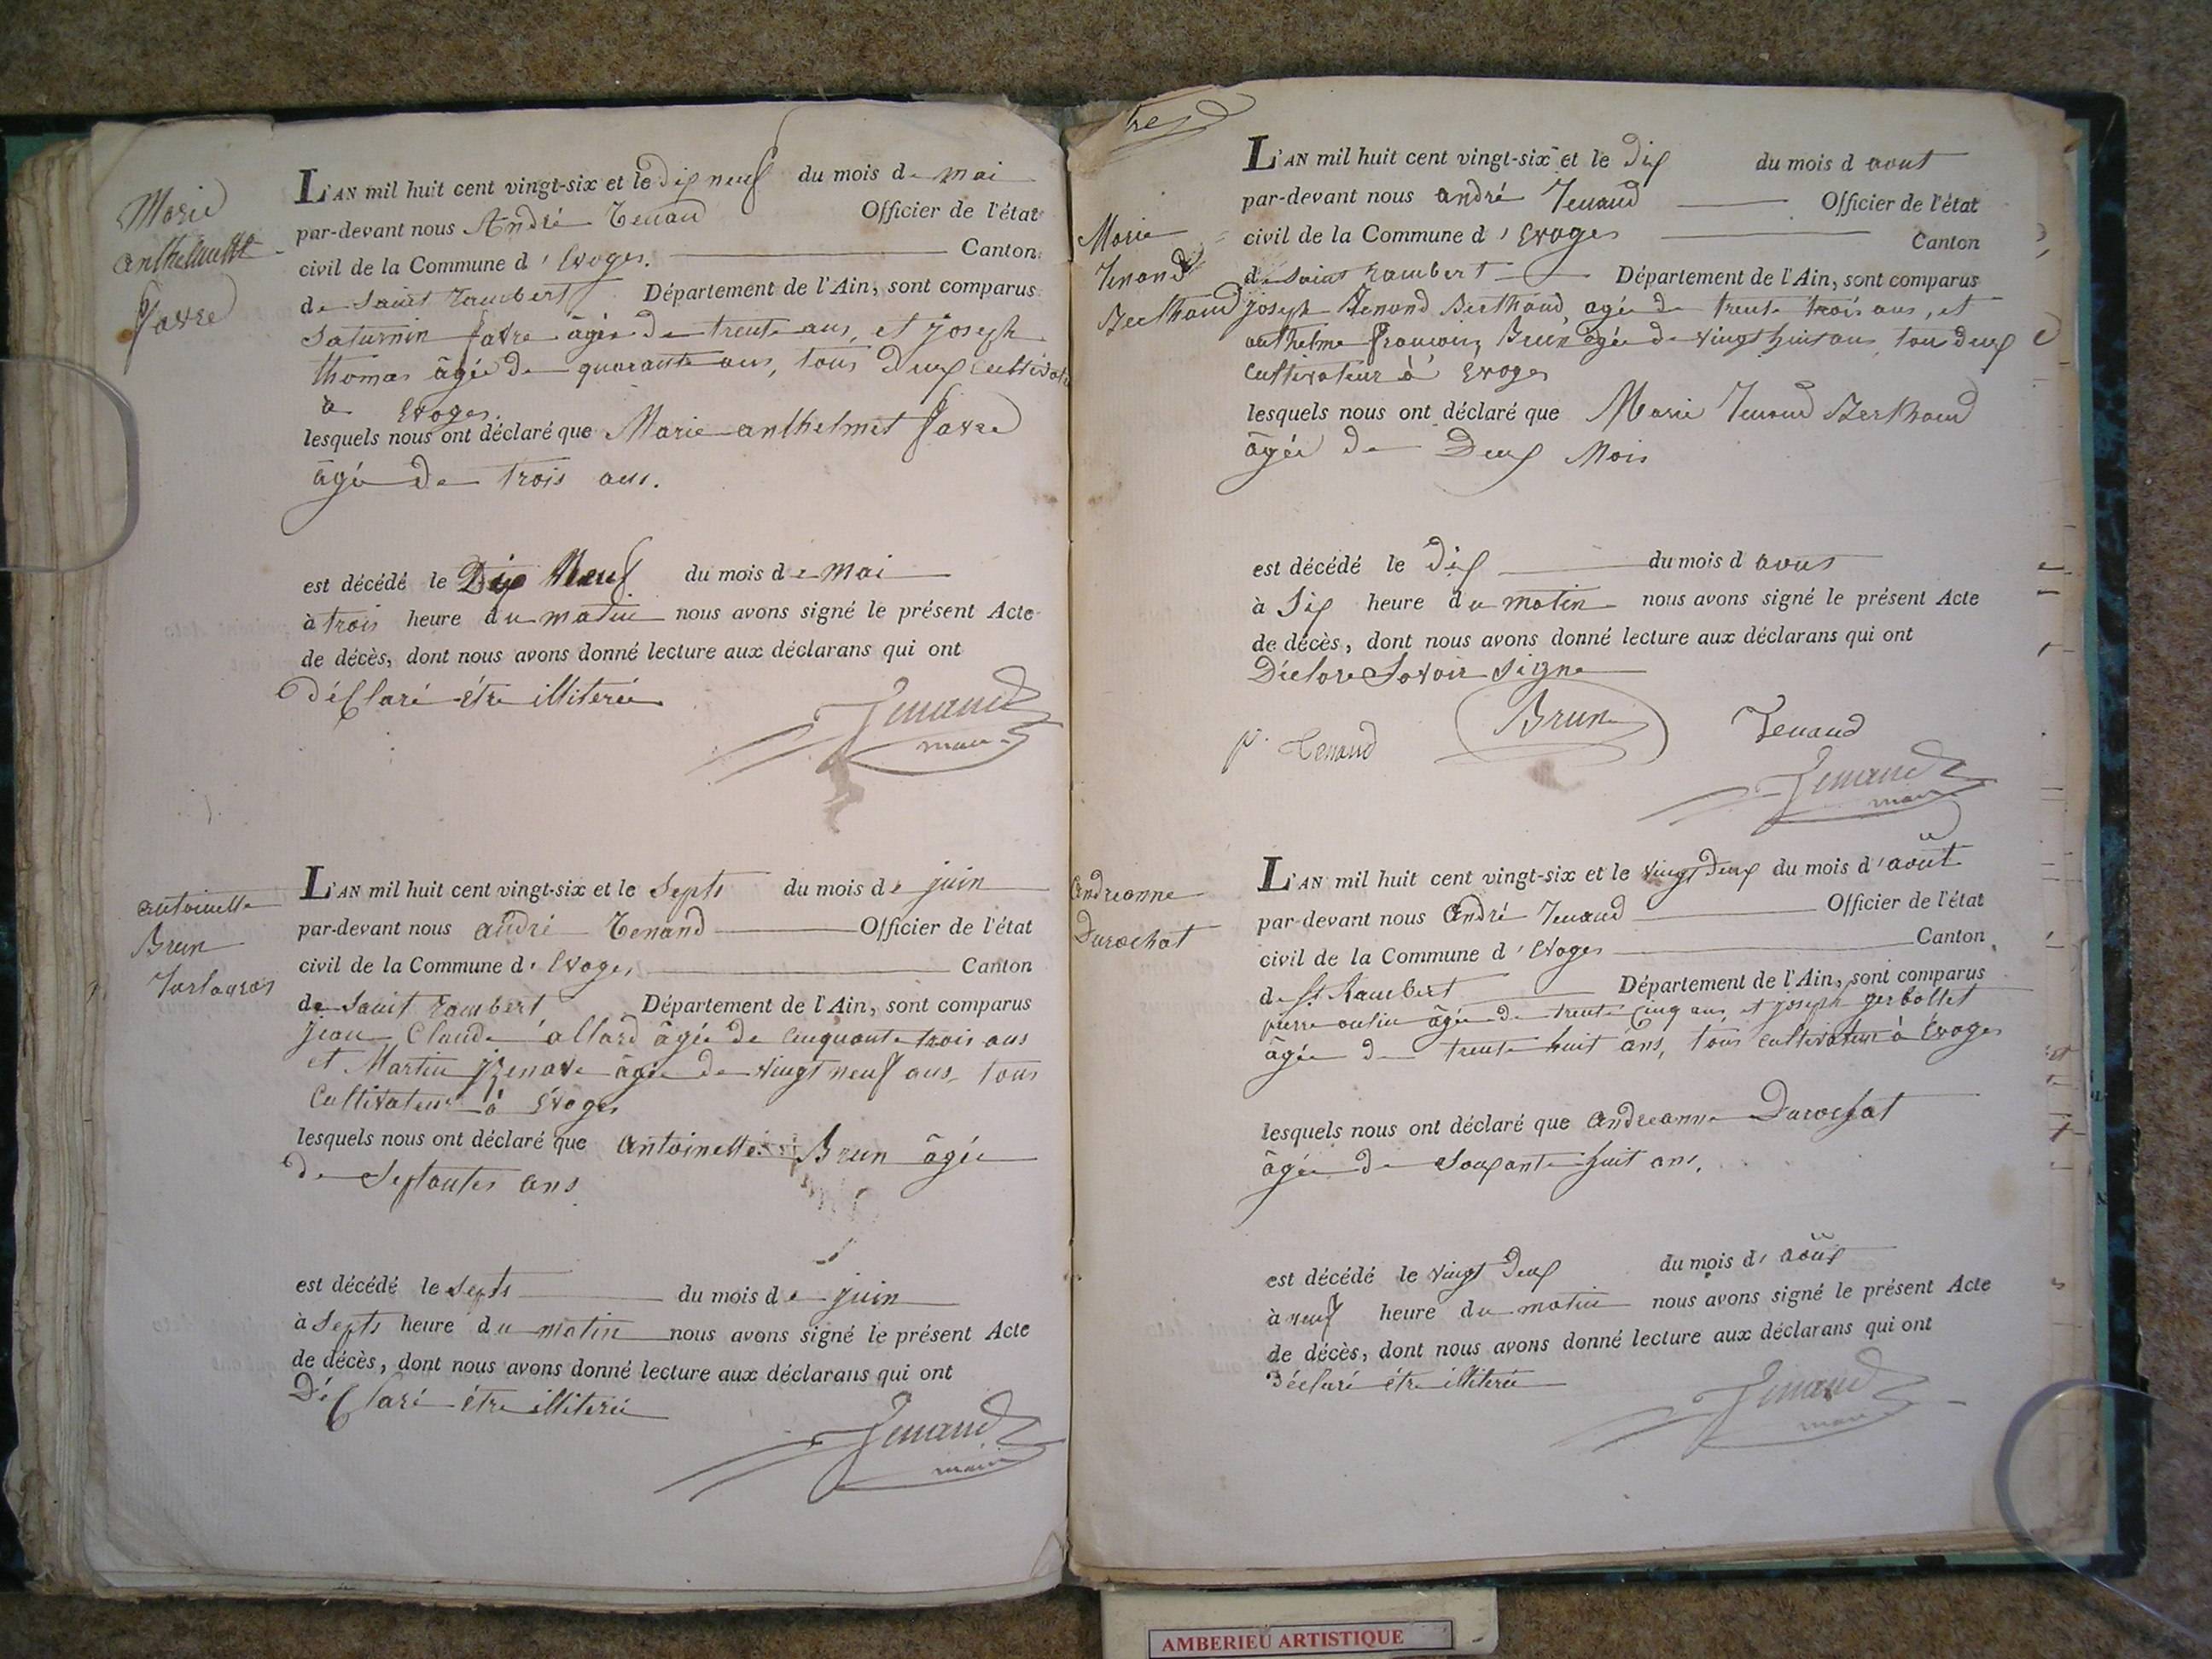 Marie
anthelmette
favre
L'AN mil huit cent vingt-six et le dix neuf du mois de mai
par-devant nous André Tenand Officier de l'état
civil de la Commune d'Evoges. Canton
de Saint rambert Département de l'Ain, sont comparus
Saturnin favre âgée de trente ans, et joseph
thomas âgée de quarante ans, tous deux
à Evoges
lesquels nous ont déclaré que Marie anthelmet favre
âgé de trois ans.
est décédé le Dix Neuf du mois de mai
à trois heure du matin nous avons signé le présent Acte
de décès, dont nous avons donné lecture aux déclarans qui ont
Déclaré être illiterée
Tenand
maire
antoinette
Brun
L'AN mil huit cent vingt-six et le Septs du mois de juin
par-devant nous andré Tenand Officier de l'état
civil de la Commune d'Evoges Canton
de Saint rambert Département de l'Ain, sont comparus
jean Claude allard âgée de cinquante trois ans
et Martin âgée de vingt neuf ans, tous
Cultivateur à Evoges
lesquels nous ont déclaré que antoinette Brun âgée
de Septantes ans
est décédé le Septs du mois de juin
à Septs heure du matin nous avons signé le présent Acte
de décès, dont nous avons donné lecture aux déclarans qui ont
Déclaré être illiterée
Tenand
maire
Marie
Tenand
Berthaud
L'AN mil huit cent vingt-six et le dix du mois d aout
par-devant nous andré Tenand Officier de l'état
civil de la Commune d'Evoges Canton
de Saint rambert Département de l'Ain, sont comparus
joseph Tenand Berthaud agée de trente trois ans, et
anthelme françois Brun âgée de vingt huit ans tou deux
Cultivateur à Evoges
lesquels nous ont déclaré que Marie Tenand Berthaud
âgée de Deux Mois
est décédé le dix du mois d aout
à Six heure du matin nous avons signé le présent Acte
de décès, dont nous avons donné lecture aux déclarans qui ont
Déclare Savoir Signe
Tenand Brun Tenand
Tenand
maire
andreanne
Durochat
L'AN mil huit cent vingt-six et le vingt Deux du mois d'août
par-devant nous André Tenand Officier de l'état
civil de la Commune d'Evoges Canton
de St Rambert Département de l'Ain, sont comparus
pierre âgée de trente Cinq ans, et joseph gerbollet
âgée de trente huit ans, tous cultivateur à Evoges
lesquels nous ont déclaré que andreanne Durochat
âgée de Soixante huit ans.
est décédé le vingt Deux du mois d' août
à neuf heure du matin nous avons signé le présent Acte
de décès, dont nous avons donné lecture aux déclarans qui ont
Déclaré être illiterée
Tenand
maire
AMBERIEU ARTISTIQUE